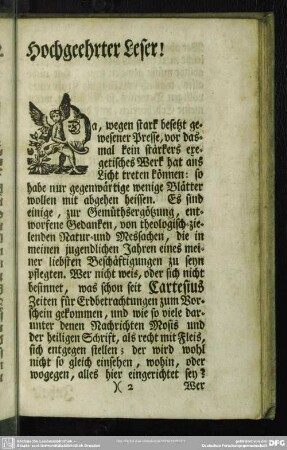 Hochgeehrter Leser!
Da, wegen stark besetzt ge-
wesener Presse, vor das-
mal kein stärkers exe-
getisches Werk hat ans
Licht treten können: so
habe nur gegenwärtige wenige Blätter
wollen mit abgehen heissen. Es sind
einige, zur Gemüthsergötzung, ent-
worfene Gedanken, von theologisch-zie-
lenden Natur-und Messachen, die in
meinen jugendlichen Jahren eines mei-
ner liebsten Beschäftigungen zu seyn
pflegten. Wer nicht weis, oder sich nicht
besinnet, was schon seit Cartesius
Zeiten für Erdbetrachtungen zum Vor-
schein gekommen, und wie so viele dar-
unter denen Nachrichten Mosis und
der heiligen Schrift, als recht mit Fleis,
sich entgegen stellen; der wird wohl
nicht so gleich einsehen, wohin, oder
wogegen, alles hier eingerichtet sey?
)( 2 Wer
DFG